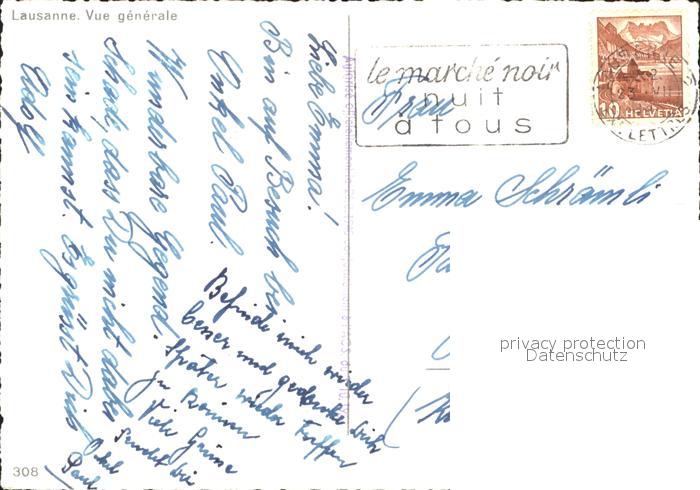 Lausanne. Vue générale
Liebe Emma!
Bin auf Besuch bei
Onkel Paul.
Wunderbare Gegend.
Schade, dass Du nicht dabei
sein kannst. Es grüsst Dich
Befinde mich wieder
besser und gedenke Dich
später wieder treffen
zu können
Viele Grüsse
sendet Dir
Onkel
Paul
308
le marché noir
nuit
à tous
10 HELVETIA
LETTRES
Frau
Emma Schrämli
privacy protection
Datenschutz